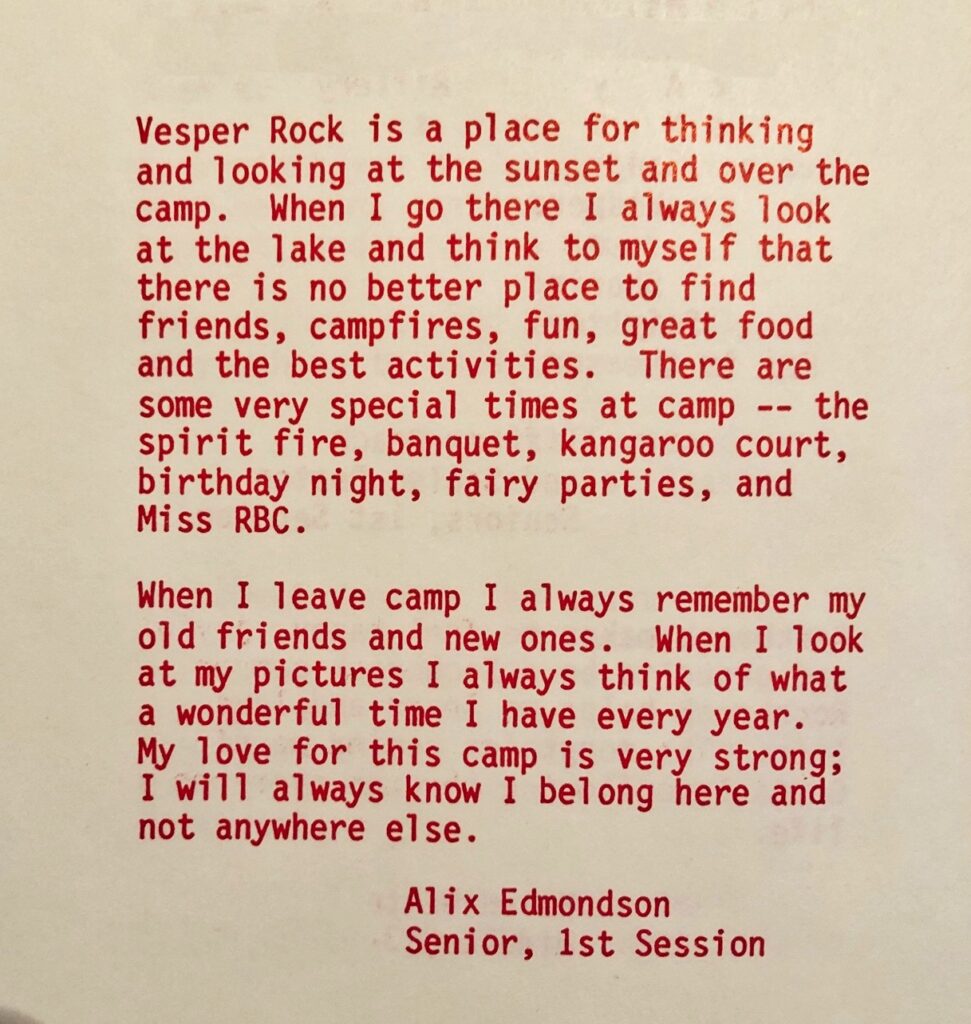 Vesper Rock is a place for thinking
and looking at the sunset and over the
camp.  When I go there I always look
at the lake and think to myself that
there is no better place to find
friends, campfires, fun, great food
and the best activities.  There are
some very special times at camp -- the
spirit fire, banquet, kangaroo court,
birthday night, fairy parties, and
Miss RBC.

When I leave camp I always remember my
old friends and new ones.  When I look
at my pictures I always think of what
a wonderful time I have every year.
My love for this camp is very strong;
I will always know I belong here and
not anywhere else.

Alix Edmondson
Senior, 1st Session